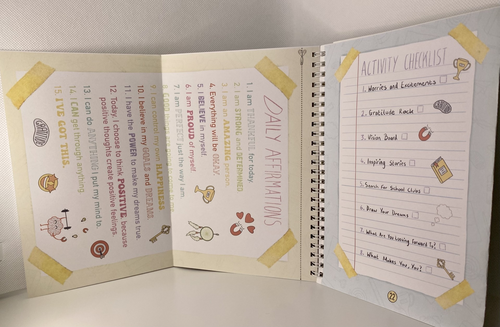 DAILY AFFIRMATIONS
1. I am THANKFUL for today.
2. I am STRONG and DETERMINED.
3. I am an AMAZING person.
4. Everything will be OKAY.
5. I BELIEVE in myself.
6. I am PROUD of myself.
7. I am PERFECT just the way I am.
9. I can control my own HAPPINESS
10. I believe in my GOALS and DREAMS.
11. I have the POWER to make my dreams true.
12. Today, I choose to think POSITIVE because
positive thoughts create positive feelings.
13. I can do ANYTHING I put my mind to.
14. I CAN get through anything.
15. I'VE GOT THIS.
ACTIVITY CHECKLIST
1. Worries and Excitements
2. Gratitude Rock
3. Vision Board
4. Inspiring Stories
5. Search for School Clubs
6. Draw Your Dreams
7. What Are You Looking Forward To?
8. What Makes You, You?
22